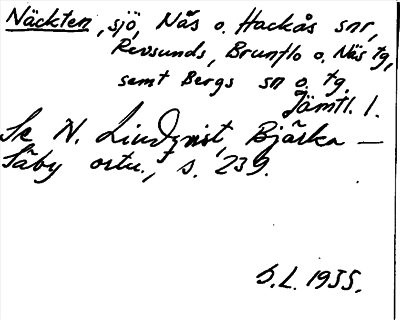 Näckten, sjö, Näs o. Hackås snr,
Revsunds, Brunflo o. Näs tg,
samt Bergs sn o. tg.
Jämtl. l.
Se N. Lindqvist, Bjärka –
Säby ortn., s. 239.
S.L. 1935.